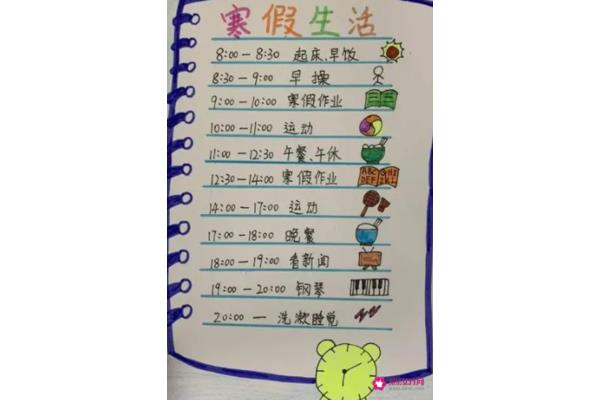 寒假生活
8:00-8:30 起床、早饭
8:30-9:00 早操
9:00-10:00 寒假作业
10:00-11:00 运动
11:00-12:30 午餐、午休
12:30-14:00 寒假作业
14:00-17:00 运动
17:00-18:00 晚餐
18:00-19:00 看新闻
19:00-20:00 钢琴
20:00一 洗漱睡觉